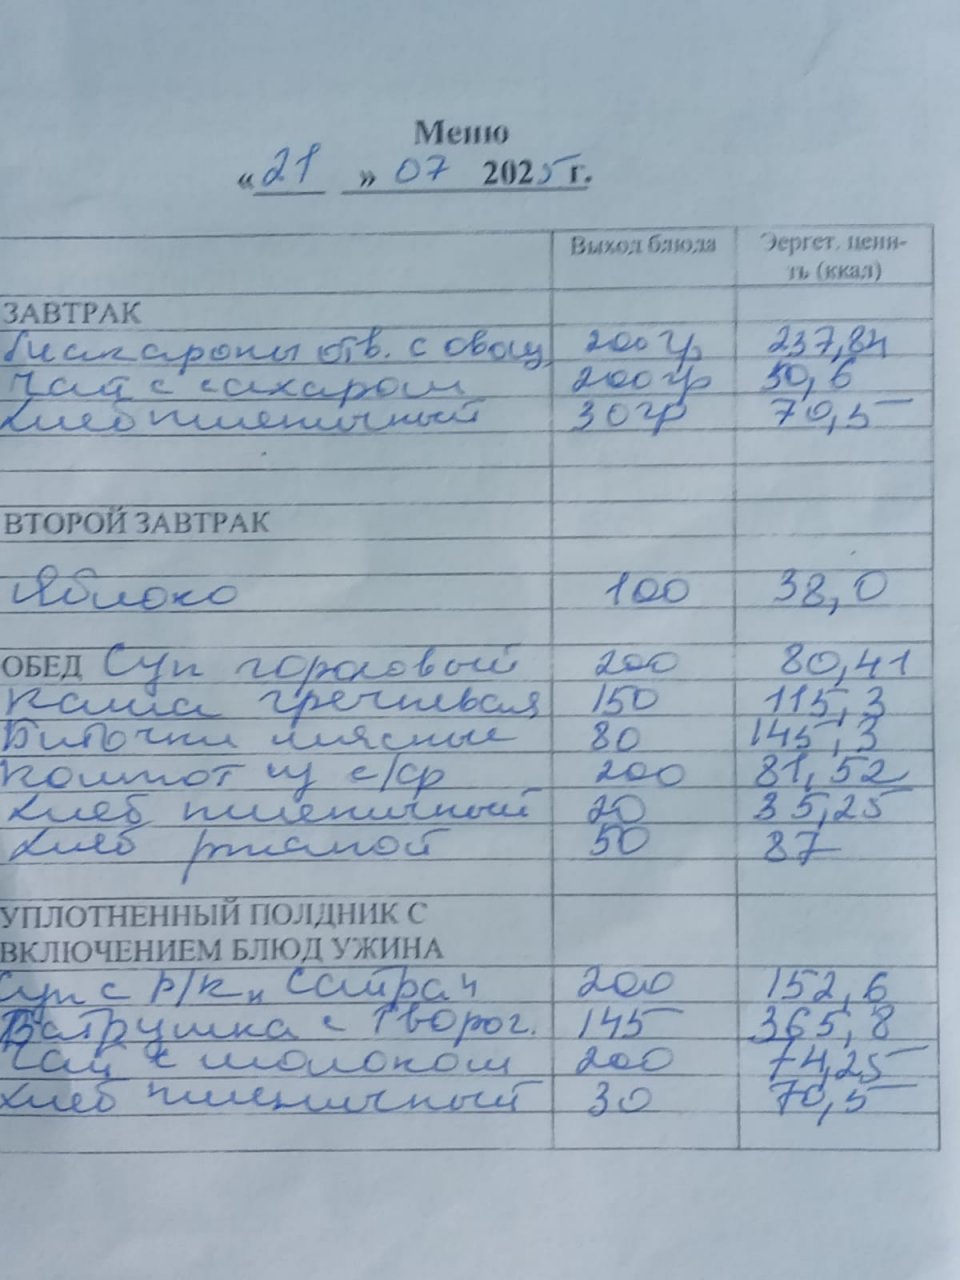 Меню
« 21 » 07 2025 г.
Выход блюда Эергет. ценн-
ть (ккал)
ЗАВТРАК
Макароны отв. с овощ 200 гр 237,84
Чай с сахаром 200 гр 50,6
Хлеб пшеничный 30 гр 70,5
ВТОРОЙ ЗАВТРАК
Яблоко 100 38,0
ОБЕД Суп гороховый 200 80,41
Каша гречневая 150 115,3
Биточки мясные 80 145,3
Компот из с/ср 200 81,52
Хлеб пшеничный 20 35,25
Хлеб ржаной 50 87
УПЛОТНЕННЫЙ ПОЛДНИК С
ВКЛЮЧЕНИЕМ БЛЮД УЖИНА
Суп с р/к "Сайра" 200 152,6
Ватрушка с творог. 145 365,8
Чай с молоком 200 74,25
Хлеб пшеничный 30 70,5